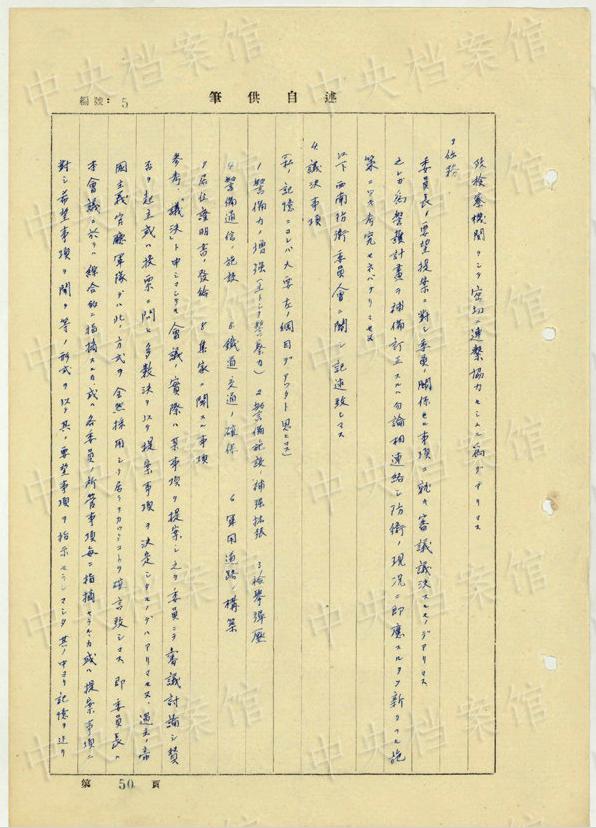 筆供自述
編號:5
及檢察機關ヲシテ密切ニ連繫協力セシムル為デアリマス
ワ任務
委員長ノ要望提案ニ對シ委員ノ關係セル事項ニ就キ審議議決スルモノデアリマス
之レガ為警護計畫ヲ補備訂正スルハ勿論相連絡シ防衛ノ現況ニ即應スルタメ新タナル施
策ニツキ考究セネバナリマセヌ
以下西南防衛委員会ニ関シ記述致シマス
4議決事項
(私ノ記憶ニヨレバ大要左ノ綱目デアツタト思ヒマス)
1警備力ノ增强(主トシテ警察力) 2警備施設ノ補强拡張 3檢挙彈壓
4警備通信ノ施設 5鐵道交通ノ確保 6軍用道路ノ構築
7居住證明書ノ發給 8集家ニ関スル事項
参考 議決ト申シマシテモ会議ノ實際ハ某事項ヲ提案シ之ヲ委員ニテ審議討論シ賛
否ヲ起立或ハ投票ニ問ヒ多數決ヲ以テ提案事項ヲ決定シタモノデハアリマセヌ、過去ノ帝
國主義官廳軍隊デハ此ノ方式ヲ全然採用シテ居ラナカツタコトヲ確言致シマス 即委員長ハ
本會議ニ於テハ綜合的ニ指摘スルカ或ハ各委員ノ所管事項每ニ指摘セラルルカ或ハ提案事項ニ
對シ希望事項ヲ聞ク等ノ形式ヲ以テ其ノ要望事項ヲ指示セラレマシタ 其ノ中ヨリ記憶ヲ辿リ
第 50 頁
中央档案馆